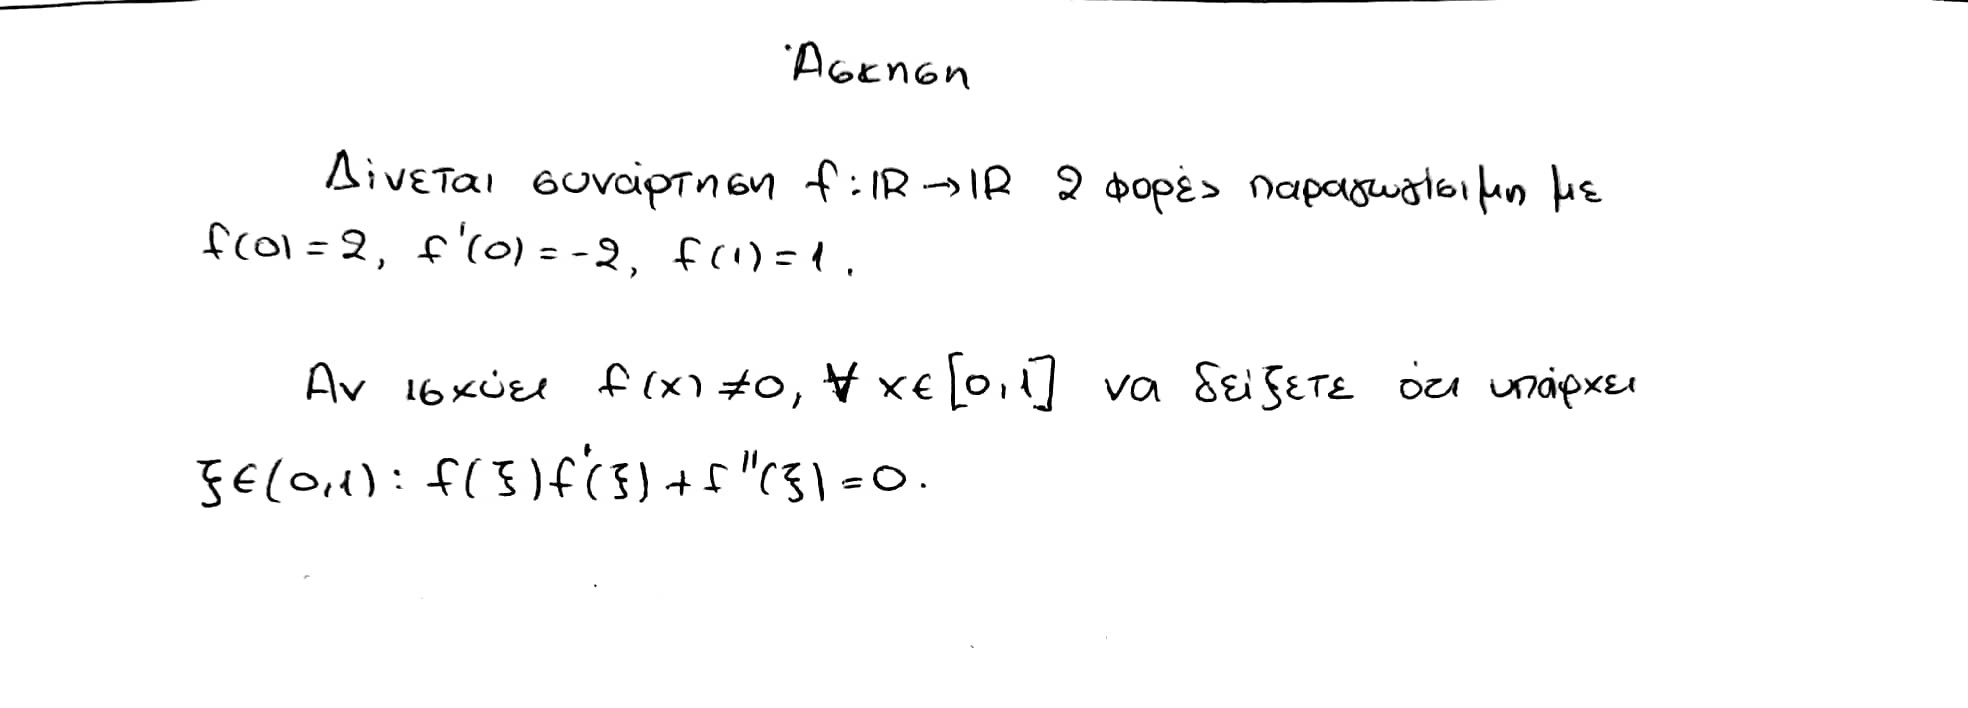 Άσκηση
Δίνεται συνάρτηση f:ℝ→ℝ 2 φορές παραγωγίσιμη με
f(0)=2, f'(0)=-2, f(1)=1.
Αν ισχύει f(x)≠0, ∀ x∈[0,1] να δείξετε ότι υπάρχει
ξ∈(0,1): f(ξ)f'(ξ)+f''(ξ)=0.